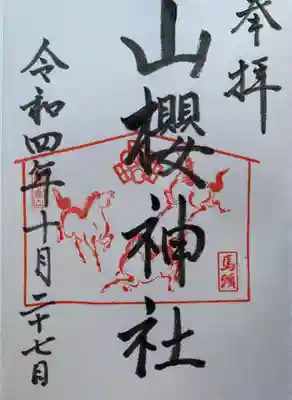 奉拝
山櫻神社
馬頭
令和四年十月二十七日